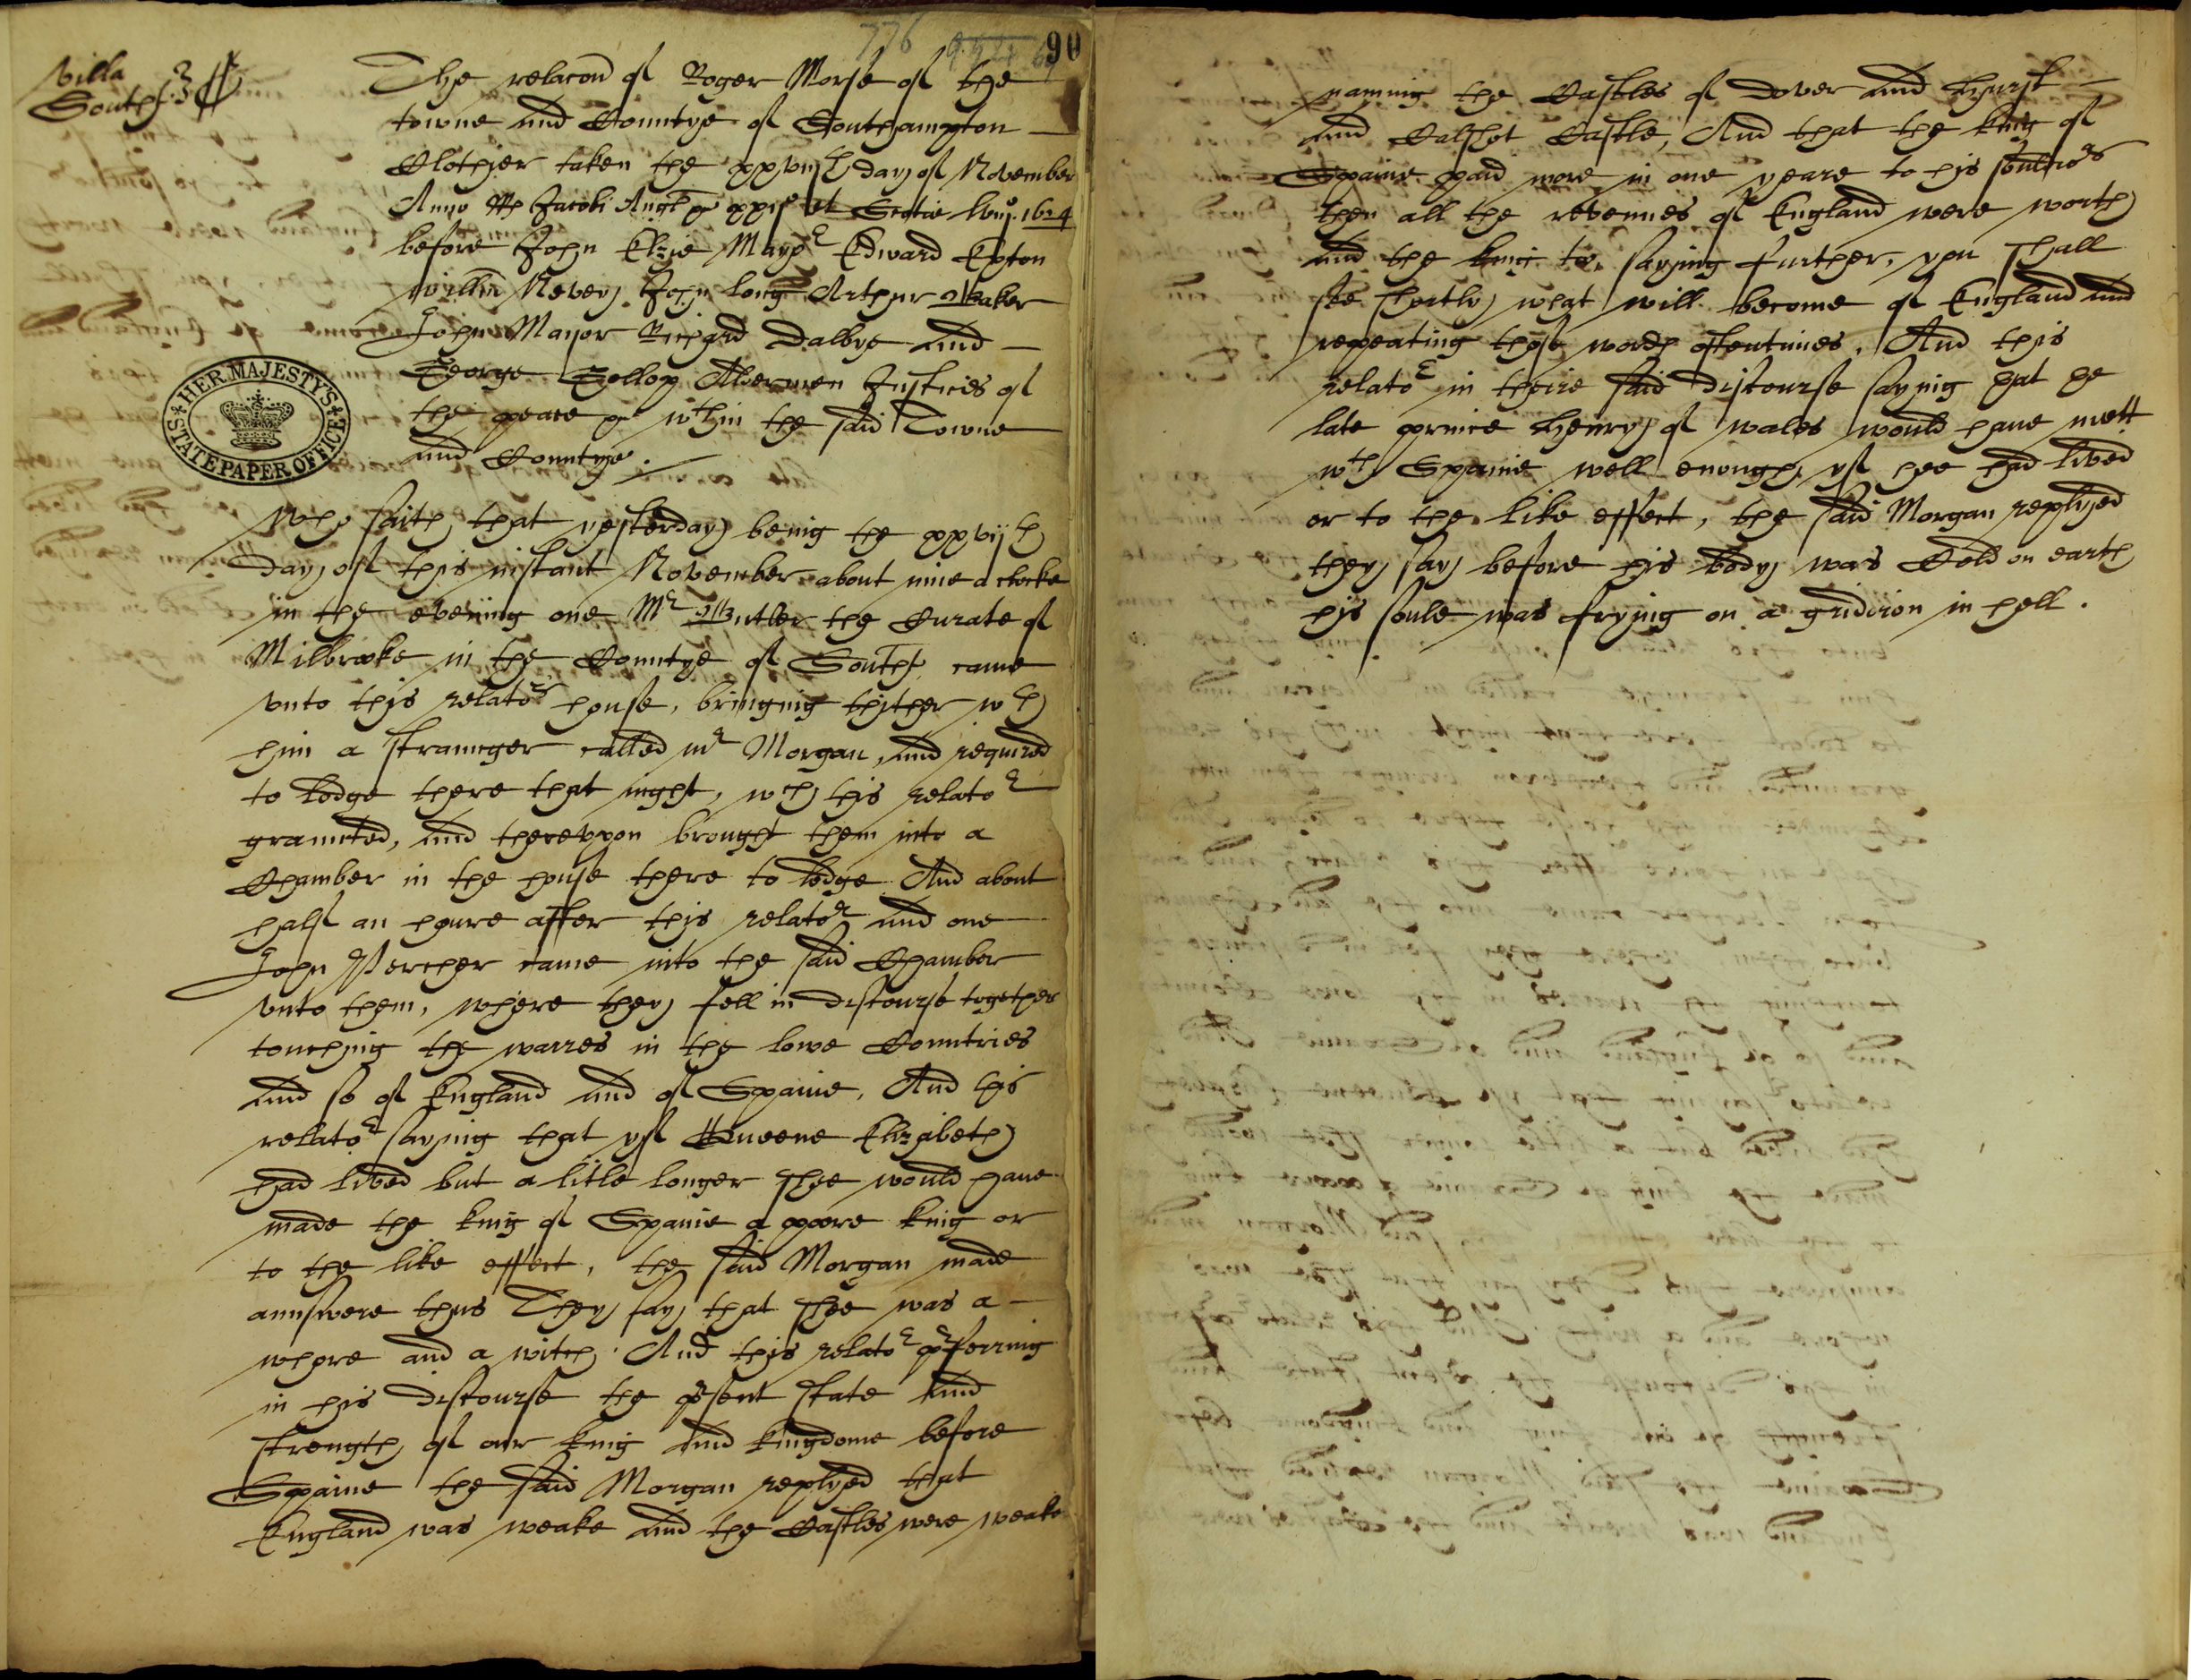 776
90
Villa
Southt
The relacon of Roger Morse of the
towne and Countye of Southampton
Clothier taken the xxviijth day of November
Anno Rs Jacobi Angl &c xxijo et Scotie lviijo 1624
before John Elzie Mayor Edward Exton
Willm Nevey John Long Arthur Baker
John Maior Richard Dalbye and
George Gollop Aldermen Justices of
the peace &c wthin the said Towne
and Countye.
HER MAJESTY'S STATE PAPER OFFICE
Who saith, that yesterday being the xxvijth
day of this instant November about nine a clocke
in the evening one Mr Butler the Curate of
Milbrooke in the Countye of Southt came
vnto this relators house, bringing thither wth
him a straunger called mr Morgan, and required
to lodge there that night, wch this relator
graunted, and therevpon brought them into a
Chamber in the house there to lodge And about
half an houre after this relator and one
John Mercher came into the said Chamber
vnto them, where they fell in discourse together
touching the warres in the lowe Countries
and so of England and of Spaine, And this
relator saying that yf Queene Elizabeth
had lived but a litle longer shee would haue
made the king of Spaine a poore king or
to the like effect, the said Morgan made
aunswere thus They say that shee was a
whore and a witch. And this relator pferring
in his discourse the psent state and
strength of our king and kingdome before
Spaine the said Morgan replyed that
England was weake and the Castles were weake
naming the Castles of Dover and Hurst
and Calshot Castle, And that the king of
Spaine paid more in one yeare to his souldiors
then all the revenues of England were worth
and the king to, saying further, you shall
see shortly what will become of England and
repeating those words oftentimes, And this
relator in theire said discourse saying that the
late prince Henry of Wales would haue mett
wth Spaine well enough yf hee had lived
or to the like effect, the said Morgan replyed
they say before his body was Cold on earth
his soule was frying on a gridiron in hell.